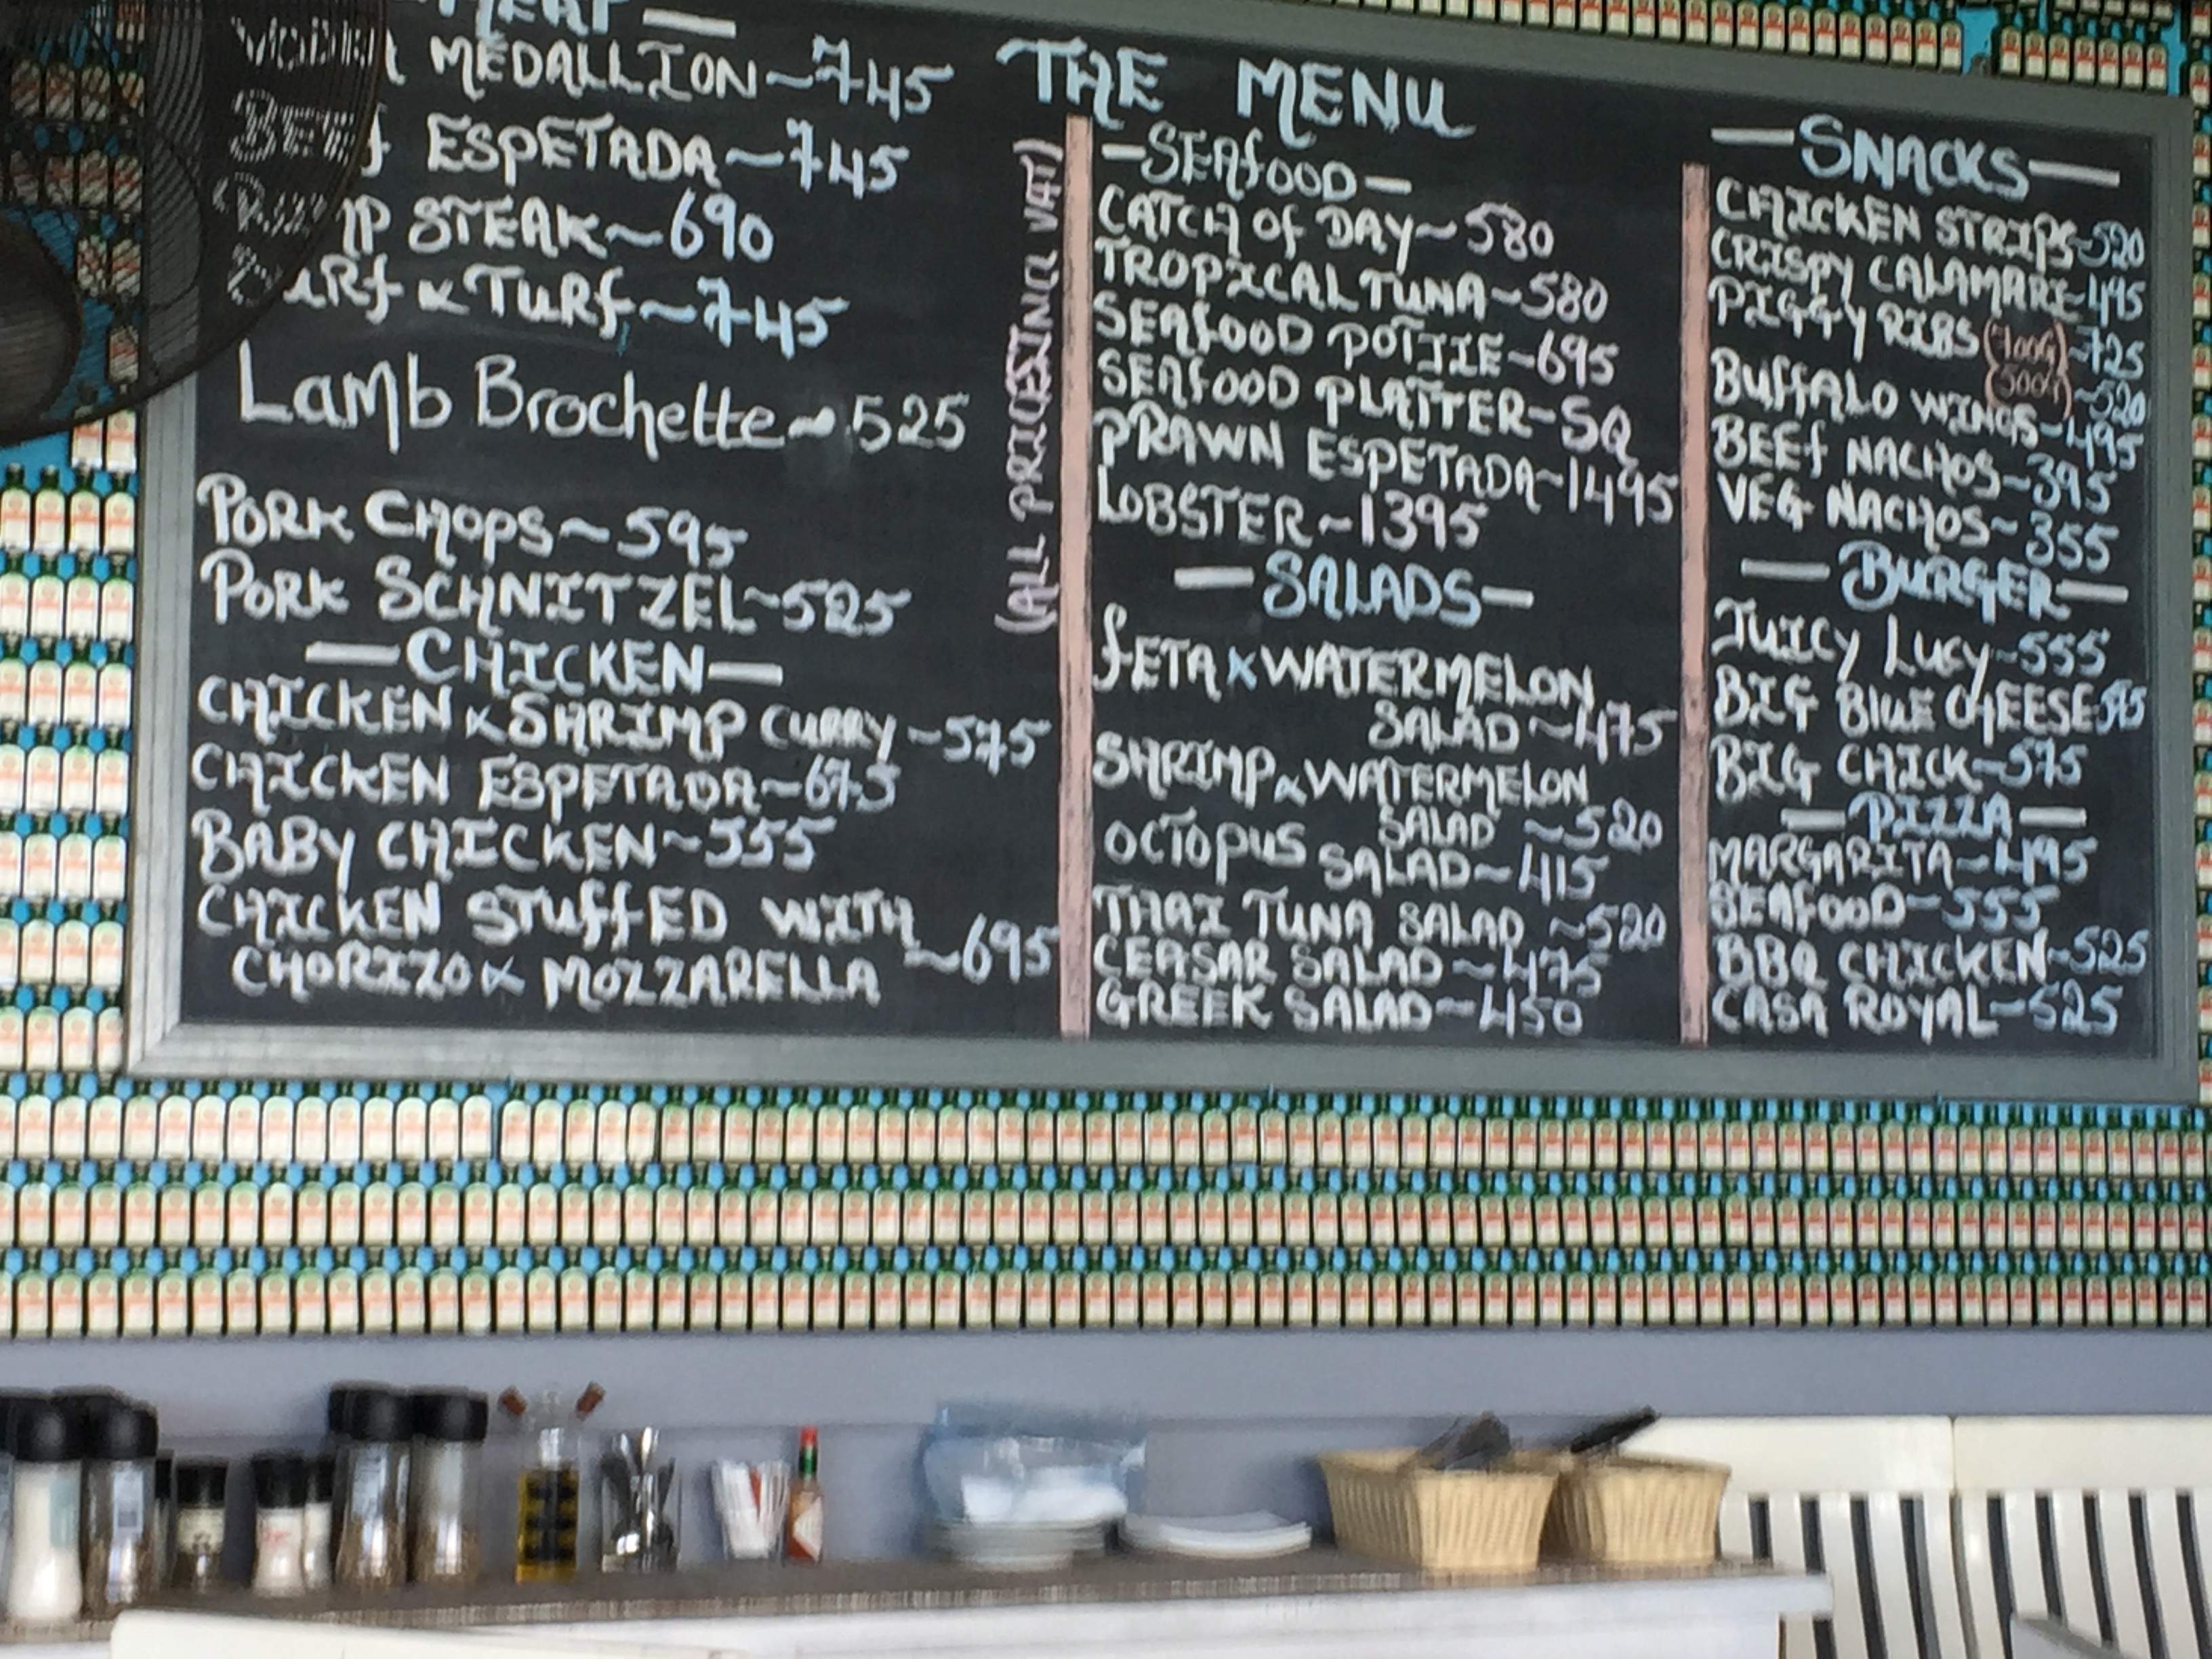 MEAT
VODKA MEDALLION~745
BEEF ESPETADA~745
RUMP STEAK~690
SURF & TURF~745
Lamb Brochette~525
PORK CHOPS~595
PORK SCHNITZEL~525
CHICKEN
CHICKEN & SHRIMP CURRY~575
CHICKEN ESPETADA~675
BABY CHICKEN~555
CHICKEN STUFFED WITH
CHORIZO & MOZZARELLA ~695
(ALL PRICES INCL VAT)
THE MENU
-SEAFOOD-
CATCH OF DAY~580
TROPICAL TUNA~580
SEAFOOD POTJIE~695
SEAFOOD PLATTER~SQ
PRAWN ESPETADA~1495
LOBSTER~1395
SALADS
FETA & WATERMELON
SALAD~475
SHRIMP & WATERMELON
SALAD~520
OCTOPUS SALAD~415
THAI TUNA SALAD~520
CEASAR SALAD~475
GREEK SALAD~450
SNACKS
CHICKEN STRIPS~520
CRISPY CALAMARI~495
PIGGY RIBS (700G)~725
(500G)~520
BUFFALO WINGS~495
BEEF NACHOS~395
VEG NACHOS~355
BURGER
JUICY LUCY~555
BIG BLUE CHEESE 595
BIG CHICK~575
PIZZA
MARGARITA~495
SEAFOOD~555
BBQ CHICKEN~525
CASA ROYAL~525